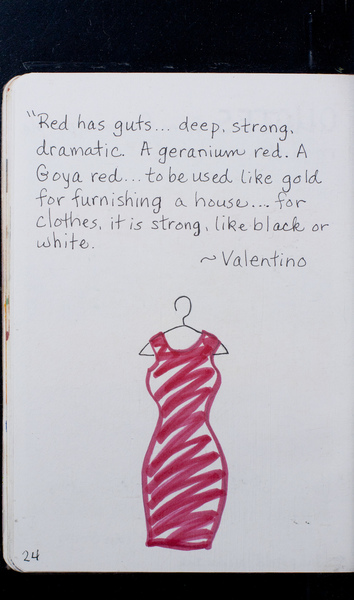 "Red has guts... deep, strong,
dramatic. A geranium red. A
Goya red... to be used like gold
for furnishing a house... for
clothes, it is strong, like black or
white.
~ Valentino
24